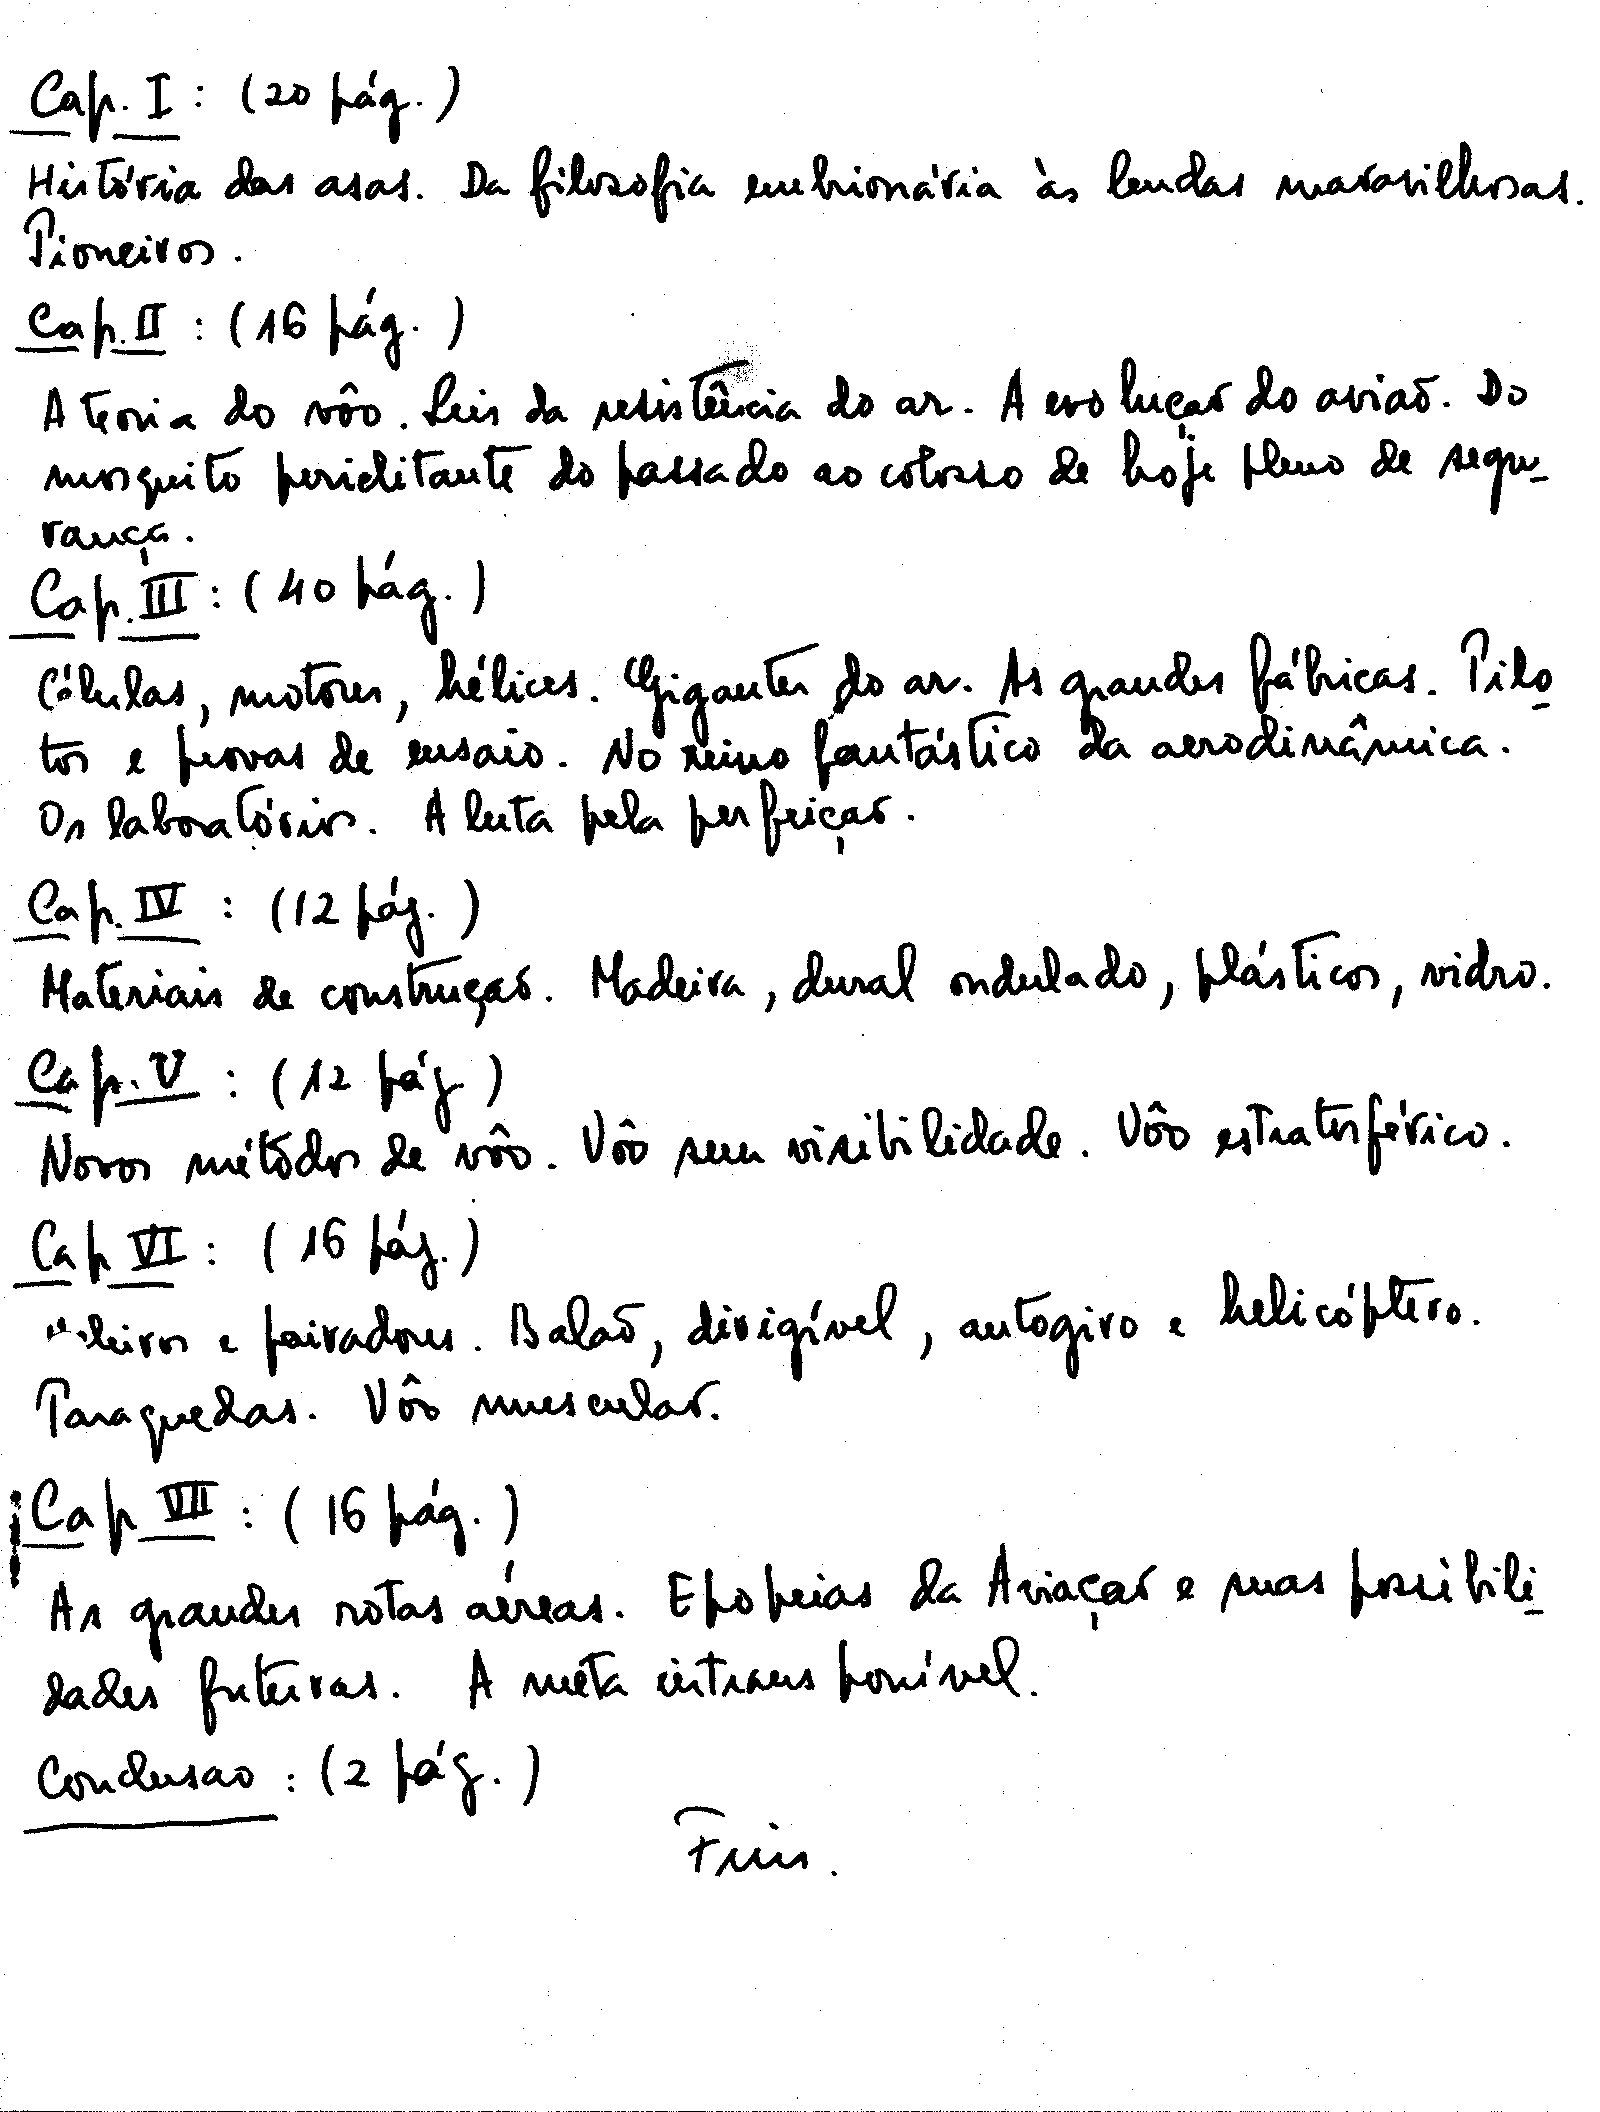 Cap. I : (20 pág.)
História das asas. Da filosofia embrionária às lendas maravilhosas.
Pioneiros.
Cap. II : (16 pág.)
A teoria do vôo. Leis da resistência do ar. A evolução do avião. Do
mosquito periclitante do passado ao colosso de hoje pleno de segu-
rança.
Cap. III : (40 pág.)
Células, motores, hélices. Gigantes do ar. As grandes fábricas. Pilo-
tos e provas de ensaio. No reino fantástico da aerodinâmica.
Os laboratórios. A luta pela perfeição.
Cap. IV : (12 pág.)
Materiais de construção. Madeira, dural ondulado, plásticos, vidro.
Cap. V : (12 pág)
Novos métodos de vôo. Vôo sem visibilidade. Vôo estratosférico.
Cap VI : (16 pág.)
e pairadores. Balão, dirigível, autogiro e helicóptero.
Paraquedas. Vôo muscular.
Cap VII : (16 pág.)
As grandes rotas aéreas. Epopeias da Aviação e suas possibili-
dades futuras. A meta intransponível.
Conclusão : (2 pág.)
Fim.